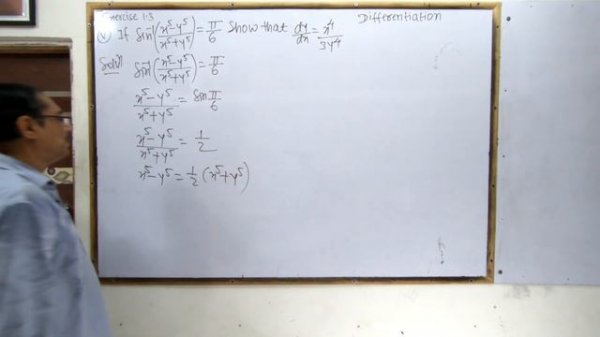 Exercise 1.3
Differentiation
(v) If sin⁻¹(x⁵-y⁵/x⁵+y⁵) = π/6 Show that dy/dx = x⁴/3y⁴
Solⁿ sin⁻¹(x⁵-y⁵/x⁵+y⁵) = π/6
x⁵-y⁵/x⁵+y⁵ = sin π/6
x⁵-y⁵/x⁵+y⁵ = 1/2
x⁵-y⁵ = 1/2 (x⁵+y⁵)